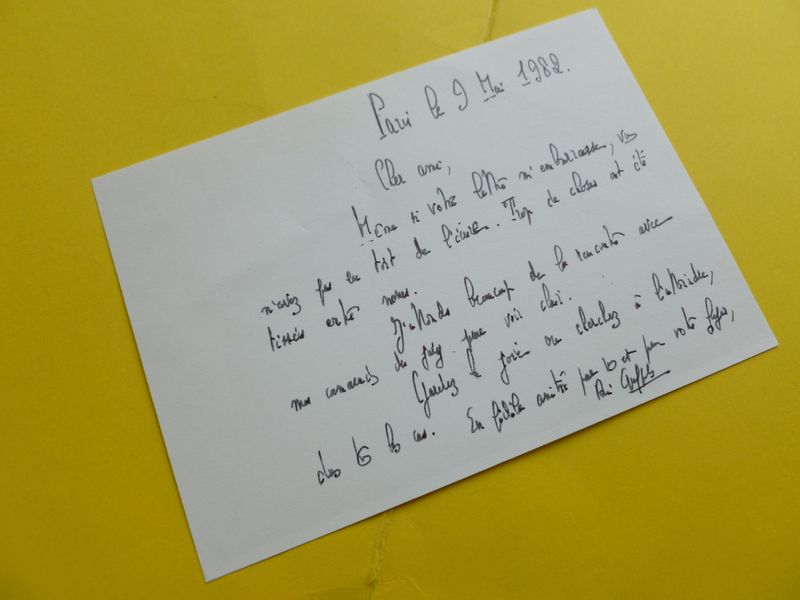 Paris le 9 Mai 1982.
Cher ami,
Même si votre lettre m'embarrasse, vous
n'avez pas eu tort de l'écrire. Trop de choses ont été
tissées entre nous.
J'attends beaucoup de la rencontre avec
mes camarades du jury pour voir clair.
Gardez la joie ou cherchez à l'atteindre,
dans ts les cas. En fidèle amitié pour et pour votre